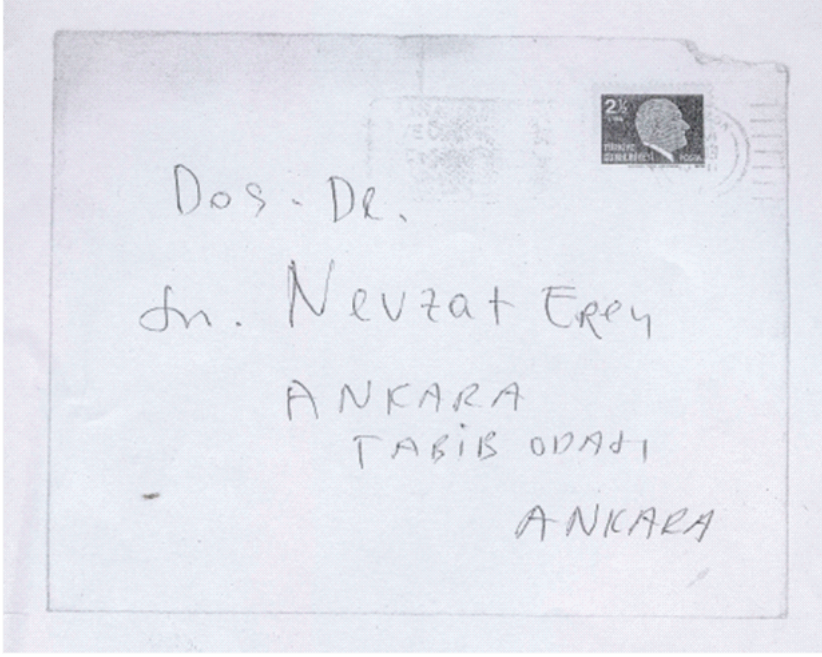 2½
TÜRKİYE
CUMHURİYETİ POSTA
Doç. Dr.
Sn. Nevzat Eren
ANKARA
TABİB ODASI
ANKARA